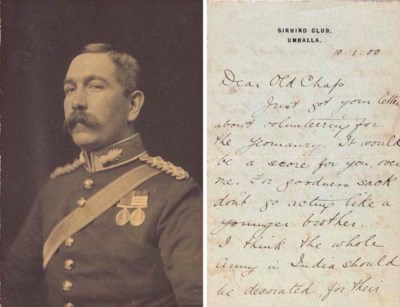 SIRHIND CLUB,
UMBALLA.
10-1-00
Dear Old Chap
Just got your letter
about volunteering for
the Yeomanry. It would
be a score for you over
me. For goodness sack
don't go acting like a
younger brother.
I think the whole
Army in India should
be decorated for their